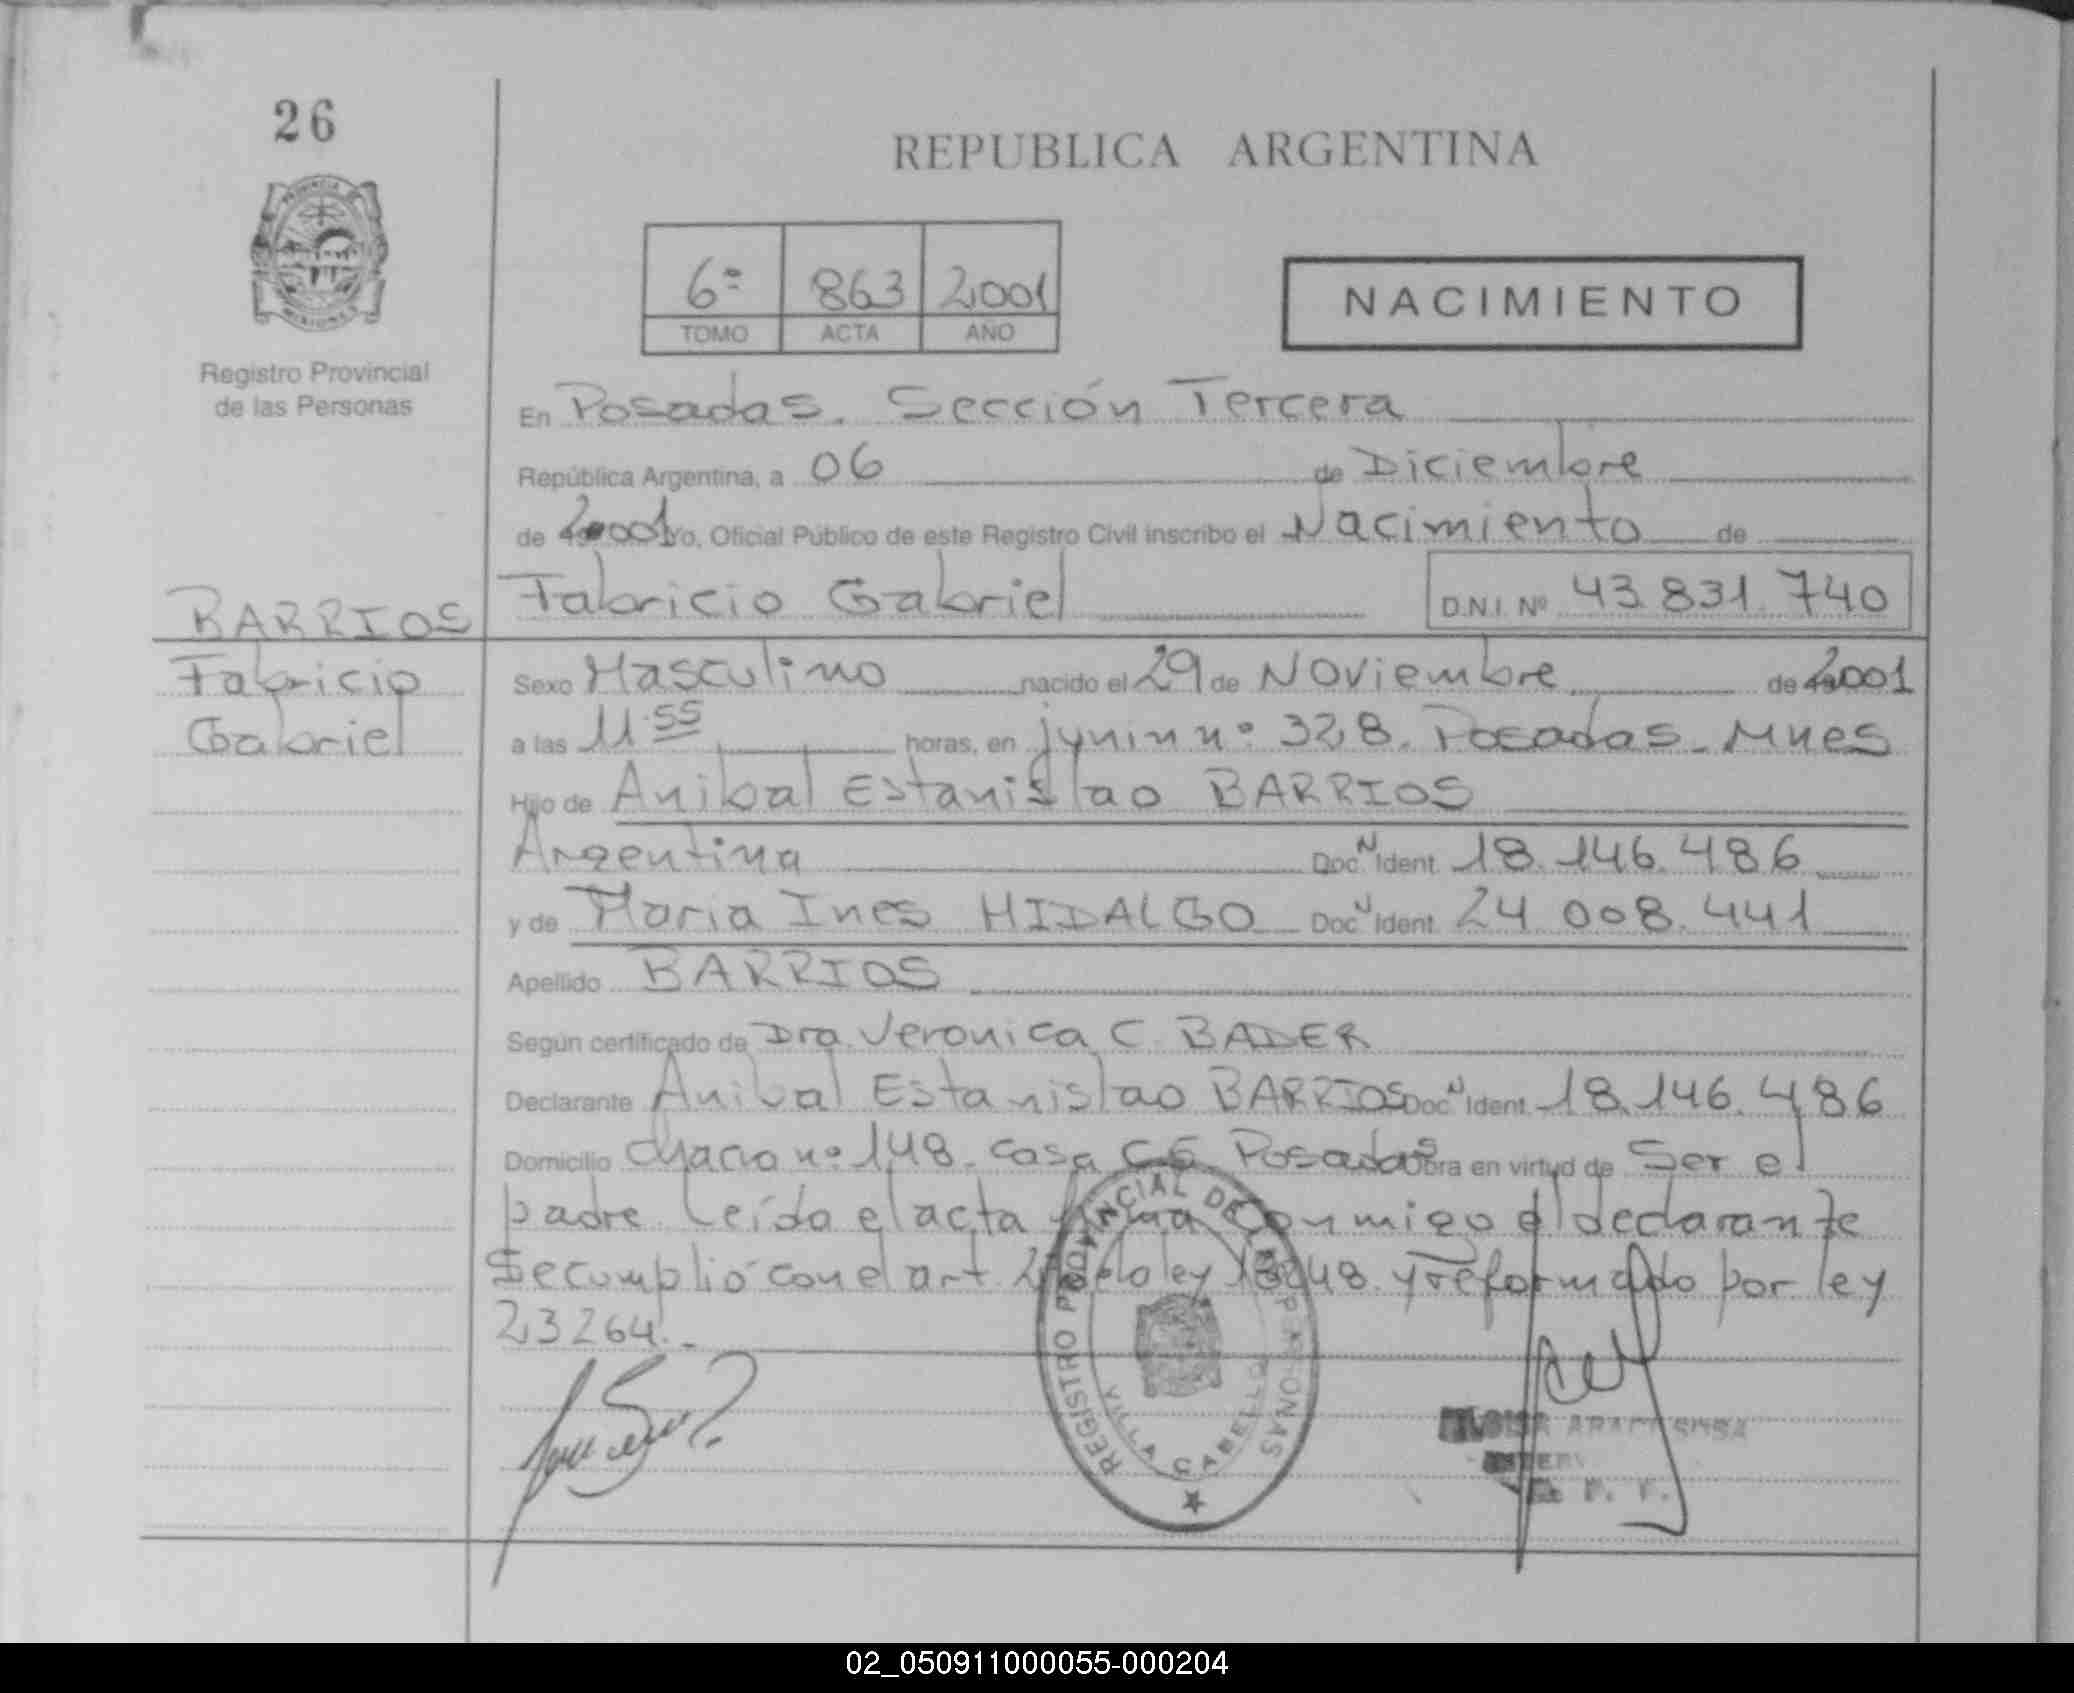 26
REPUBLICA ARGENTINA
PROVINCIA DE
MISIONES
6º 863 2001
TOMO ACTA AÑO
NACIMIENTO
Registro Provincial
de las Personas
En Posadas. Sección Tercera
República Argentina, a 06 de Diciembre
de 2001 Yo, Oficial Público de este Registro Civil inscribo el Nacimiento de
BARRIOS Fabricio Gabriel D.N.I. Nº 43.831.740
Fabricio
Gabriel
Sexo Masculino nacido el 29 de Noviembre de 2001
a las 11:55 horas, en junin nº 328. Posadas. Mnes
Hijo de Anibal Estanislao BARRIOS
Argentina Doc N Ident. 18.146.486
y de Maria Ines HIDALGO Doc N Ident. 24.008.441
Apellido BARRIOS
Según certificado de Dra. Veronica C. BADER
Declarante Anibal Estanislao BARRIOS Doc N Ident. 18.146.486
Domicilio nº 148. Casa Posadas Obra en virtud de Ser el
padre. Leído el acta firma conmigo el declarante
Se cumplió con el art. ley 18248. y reformado por ley
23264.-
REGISTRO PROVINCIAL DE LAS PERSONAS
VILLA CABELLO
02_050911000055-000204